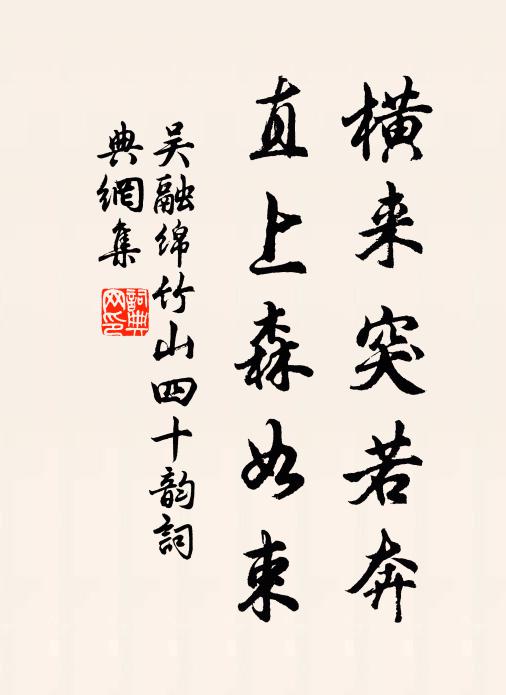 横来突若奔
直上森如束
吴融绵竹山四十韵詞
典網集
詞典網印